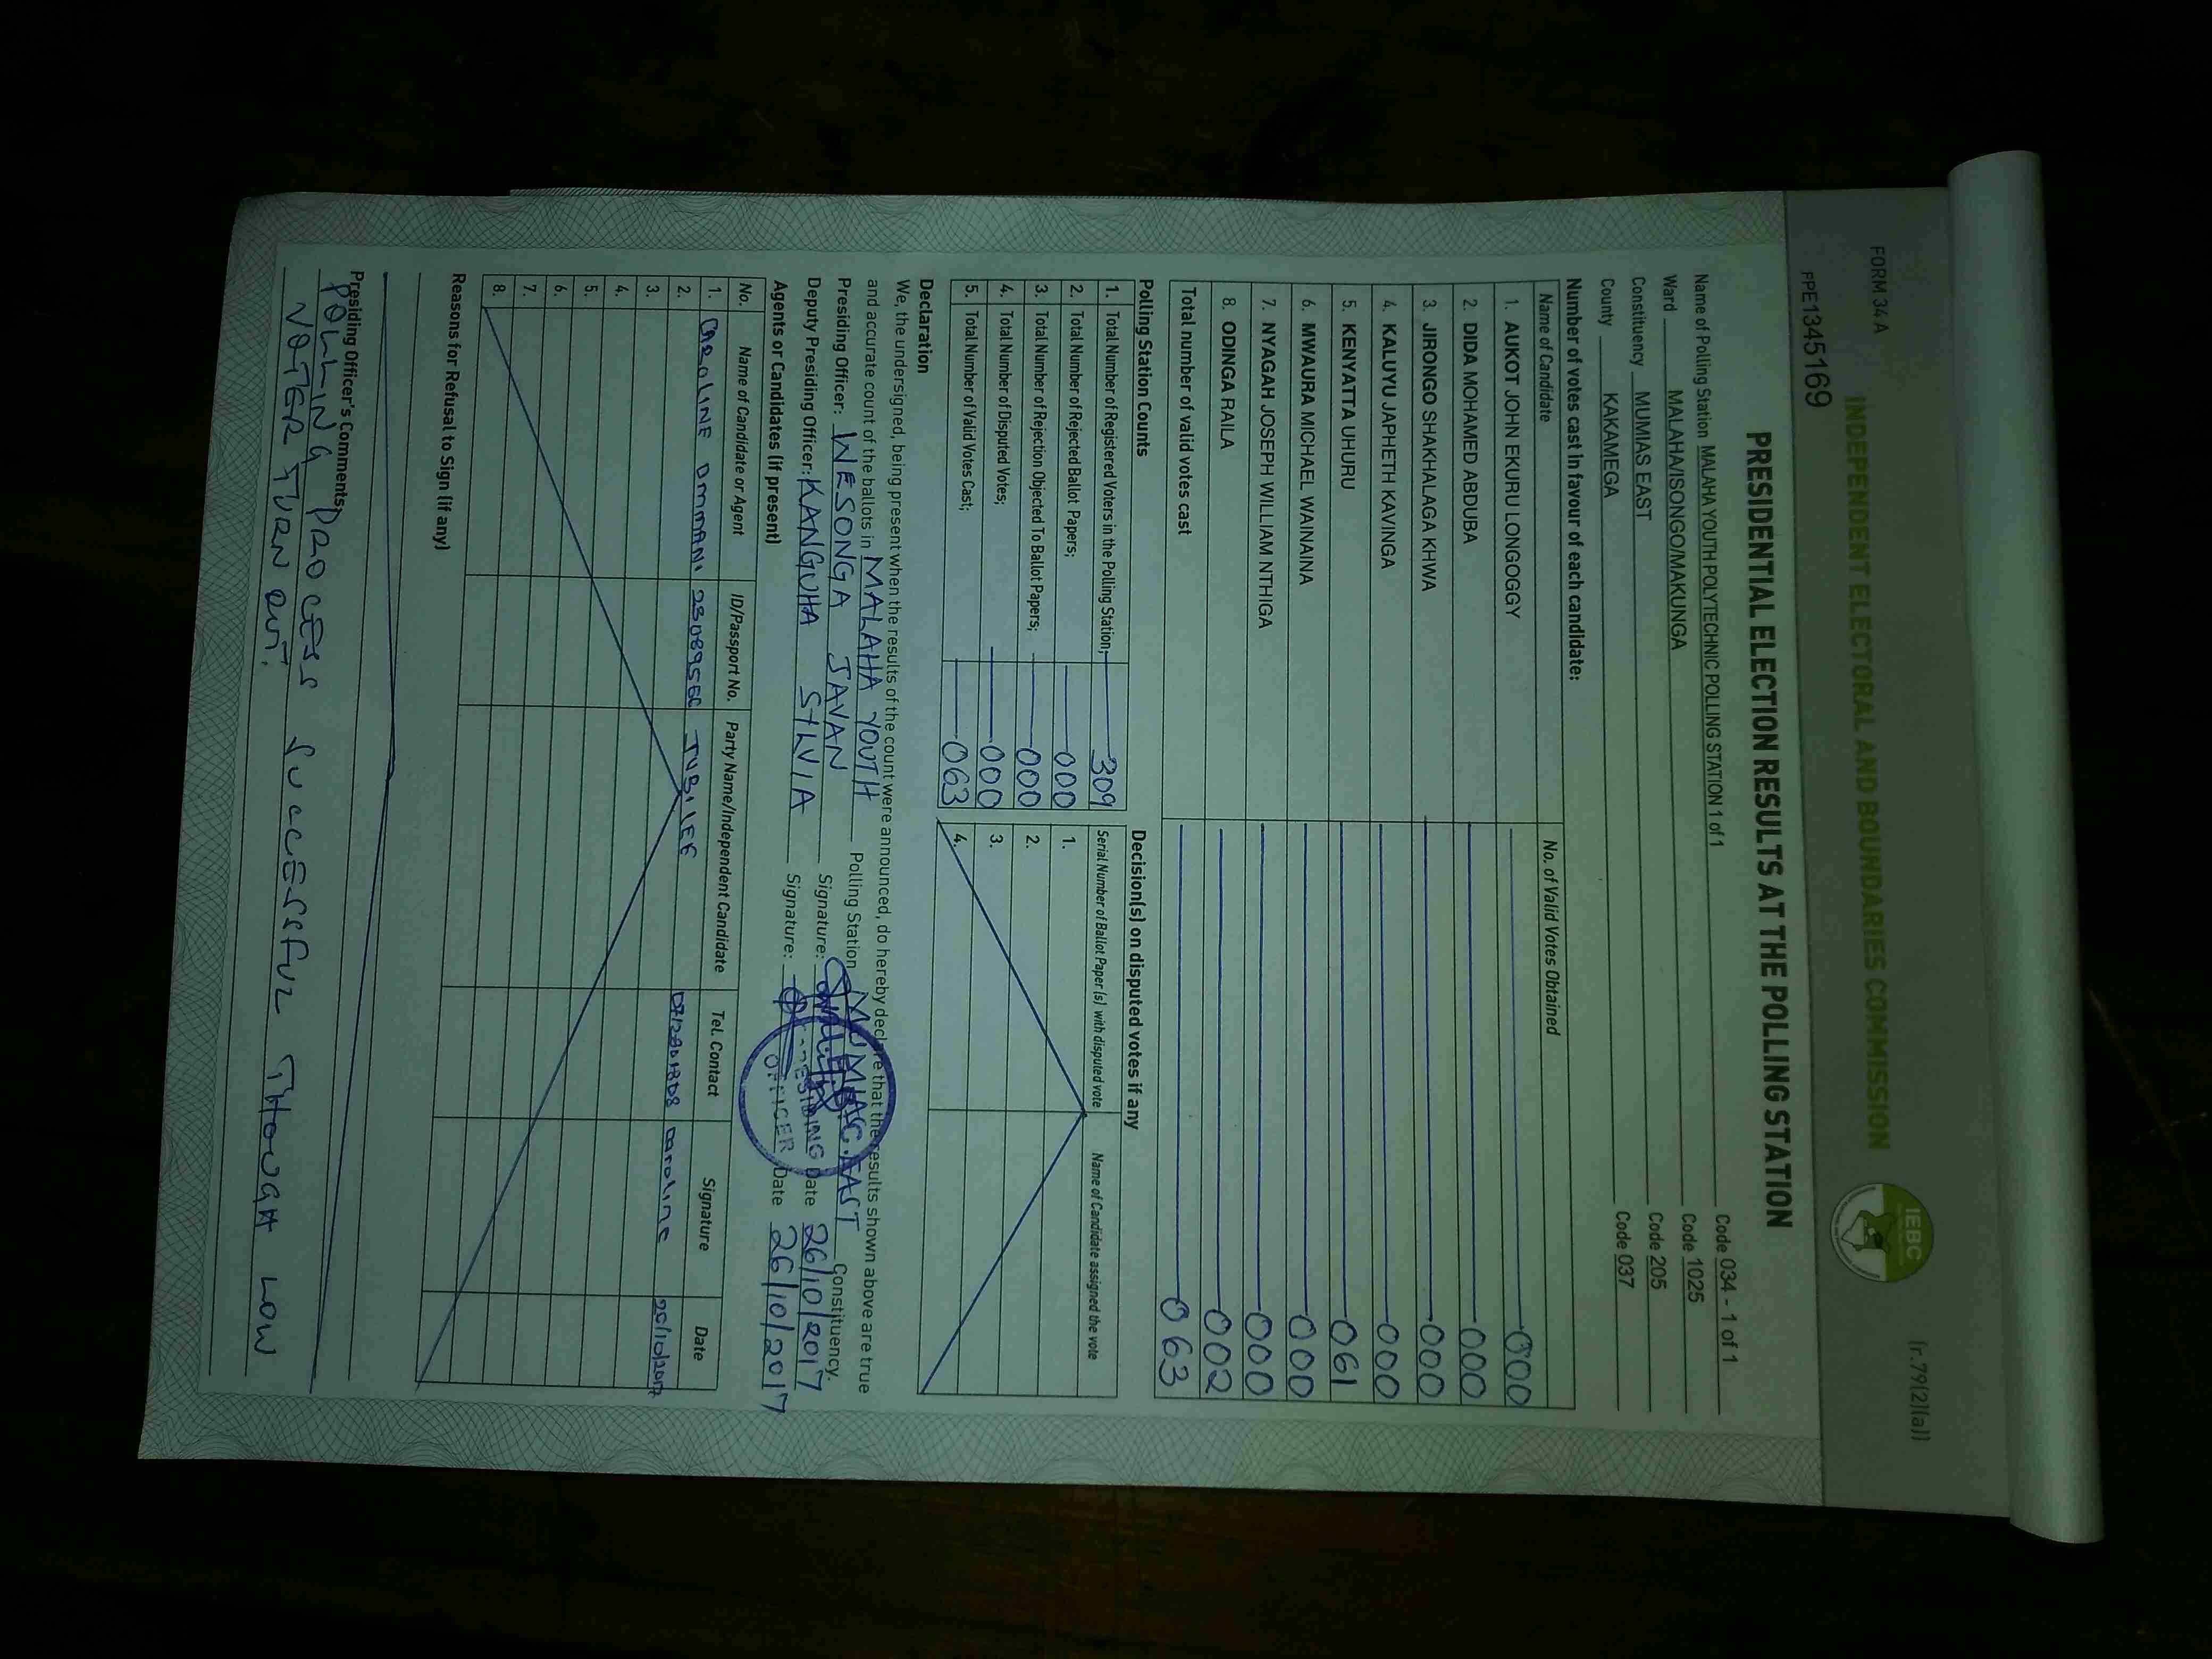 FORM 34 A
(r.79(2)(a))
INDEPENDENT ELECTORAL AND BOUNDARIES COMMISSION
IEBC
PPE1345169
PRESIDENTIAL ELECTION RESULTS AT THE POLLING STATION
Name of Polling Station MALAHA YOUTH POLYTECHNIC POLLING STATION 1 of 1 Code 034 - 1 of 1
Ward MALAHA/ISONGO/MAKUNGA Code 1025
Constituency MUMIAS EAST Code 205
County KAKAMEGA Code 037
Number of votes cast in favour of each candidate:
Name of Candidate No. of Valid Votes Obtained
1. AUKOT JOHN EKURU LONGOGGY 000
2. DIDA MOHAMED ABDUBA 000
3. JIRONGO SHAKHALAGA KHWA 000
4. KALUYU JAPHETH KAVINGA 000
5. KENYATTA UHURU 061
6. MWAURA MICHAEL WAINAINA 000
7. NYAGAH JOSEPH WILLIAM NTHIGA 000
8. ODINGA RAILA 002
Total number of valid votes cast 063
Polling Station Counts
1. Total Number of Registered Voters in the Polling Station; 309
2. Total Number of Rejected Ballot Papers; 000
3. Total Number of Rejection Objected To Ballot Papers; 000
4. Total Number of Disputed Votes; 000
5. Total Number of Valid Votes Cast; 063
Decision(s) on disputed votes if any
Serial Number of Ballot Paper (s) with disputed vote Name of Candidate assigned the vote
1.
2.
3.
4.
Declaration
We, the undersigned, being present when the results of the count were announced, do hereby declare that the results shown above are true
and accurate count of the ballots in MALAHA YOUTH Polling Station MUMIAS EAST Constituency.
Presiding Officer: WESONGA JAVAN Signature: Date 26/10/2017
Deputy Presiding Officer: KANGUHA SYLVIA Signature: Date 26/10/2017
PRESIDING
OFFICER
Agents or Candidates (if present)
No. Name of Candidate or Agent ID/Passport No. Party Name/Independent Candidate Tel. Contact Signature Date
1. CAROLINE JUBILEE Caroline 26/10/2017
2.
3.
4.
5.
6.
7.
8.
Reasons for Refusal to Sign (if any)
Presiding Officer's Comments;
POLLING PROCESS SUCCESSFUL THOUGH LOW
VOTER TURN OUT.